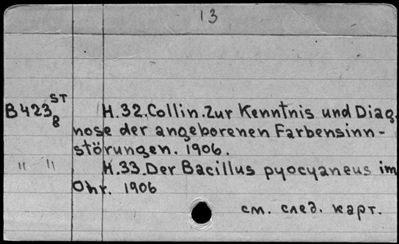 13
B423 ST 8 H.32.Collin.Zur Kenntnis und Diag-
nose der angeborenen Farbensinn-
störungen. 1906.
" " H.33.Der Bacillus pyocyaneus im
Ohr. 1906
см. след. карт.